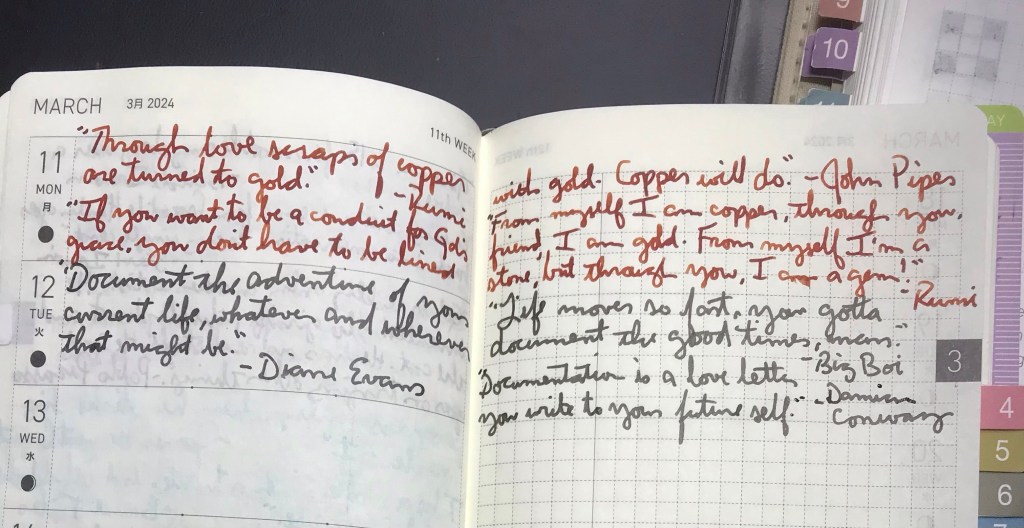 MARCH 3月 2024
11th WEEK
11
MON
月
"Through love scraps of copper
are turned to gold." -Rumi
"If you want to be a conduit for God's
grace, you don't have to be lined
12
TUE
火
"Document the adventure of your
current life, whatever and wherever
that might be."
-Diane Evans
13
WED
水
with gold. Copper will do." -John Pipes
"From myself I am copper, through you,
friend, I am gold. From myself I'm a
stone, but through you, I am a gem!"
-Rumi
"Life moves so fast, you gotta
document the good times, man."
-Big Boi
"Documentation is a love letter
you write to your future self." -Damian
Conway
3
9
10
4
5
6